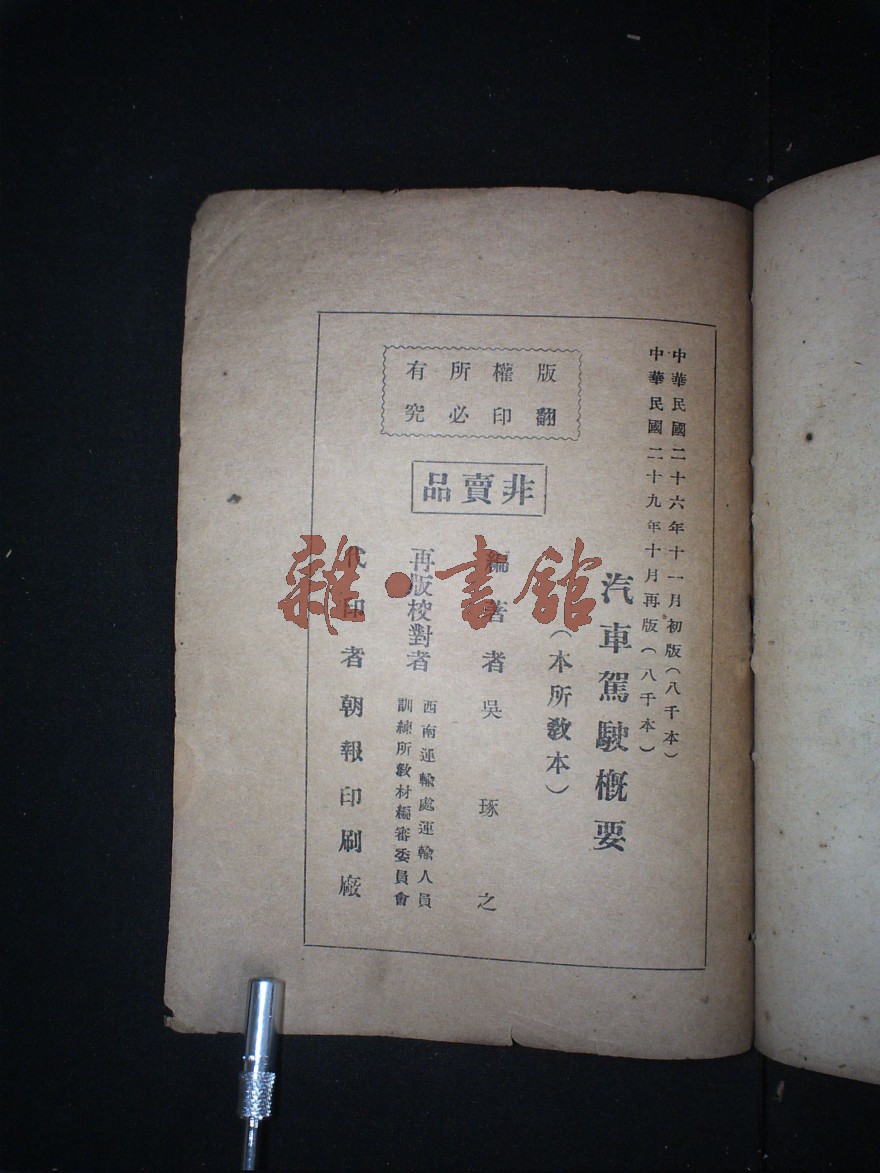 中華民國二十六年十一月初版(八千本)
中華民國二十九年十月再版(八千本)
汽車駕駛槪要
(本所敎本)
版權所有
翻印必究
非賣品
編著者吳琢之
再版校對者
西南運輸處運輸人員
訓練所敎材編審委員會
代印者朝報印刷廠
雜·書館